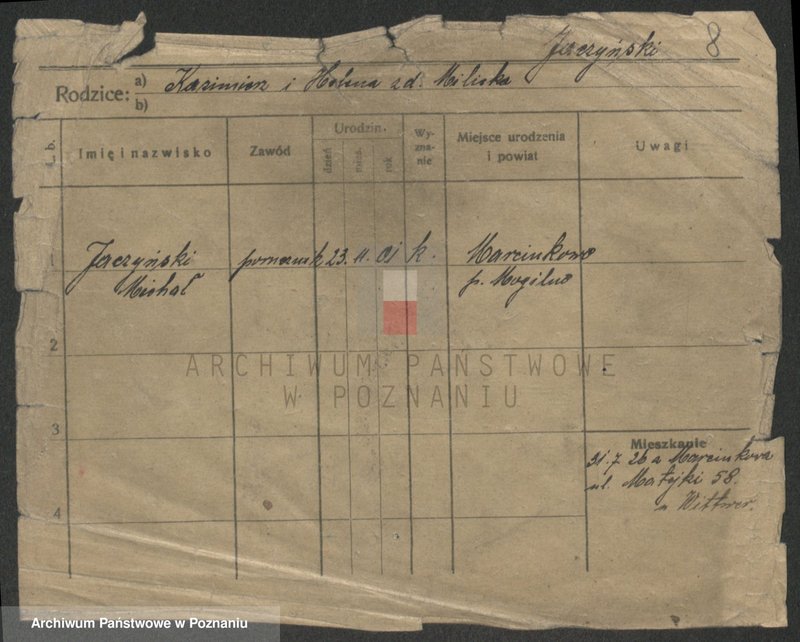 Jerzyński 8
Rodzice: a) Kazimierz i Helena zd. Milicka
b)
L. b. Imię i nazwisko Zawód Urodzin. dzień mies. rok Wy-zna-nie Miejsce urodzenia i powiat Uwagi
1 Jerzyński pomocnik 23. 11. 01 k. Marcinkowo
Michał p. Mogilno
2
ARCHIWUM PAŃSTWOWE
W POZNANIU
3
Mieszkanie
31.7 26 z Marcinkowa
ul. Matejki 58.
4
Archiwum Państwowe w Poznaniu